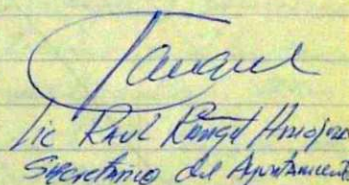 Lic Raul Rangel Hinojosa
Secretario del Ayuntamiento